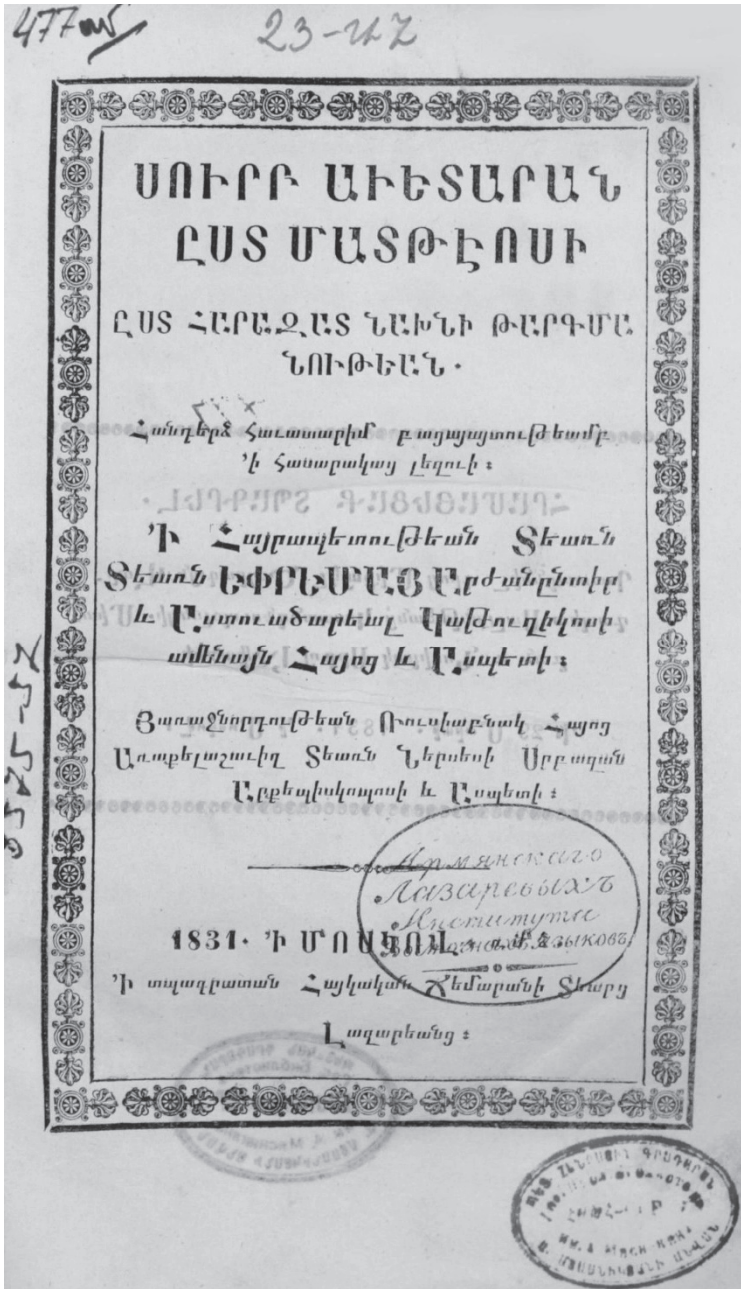 477
23-
ՍՈՒՐԲ ԱՒԵՏԱՐԱՆ
ԸՍՏ ՄԱՏԹԷՈՍԻ
ԸՍՏ ՀԱՐԱԶԱՏ ՆԱԽՆԻ ԹԱՐԳՄԱ
ՆՈՒԹԵԱՆ.
Հանդերձ հաւասարիմ բացայայտութեամբ
՚ի հասարակաց լեզուի։
՚Ի Հայրապետութեան Տեառն
Տեառն ԵՓՐԵՄԱՅ Արժանընտիր
և Աստուածարեալ Կաթուղիկոսի
ամենայն Հայոց և Ասպետի։
Յառաջնորդութեան Ռուսիաբնակ Հայոց
Առաքելաշաւիղ Տեառն Ներսեսի Սրբազան
Արքեպիսկոպոսի և Ասպետի։
Армянскаго
Лазаревыхъ
Института
Восточныхъ Языковъ
1831. ՚Ի ՄՈՍԿՈՎ.
՚Ի տպագրատան Հայկական Ճեմարանի Տեարց
Լազարեանց։